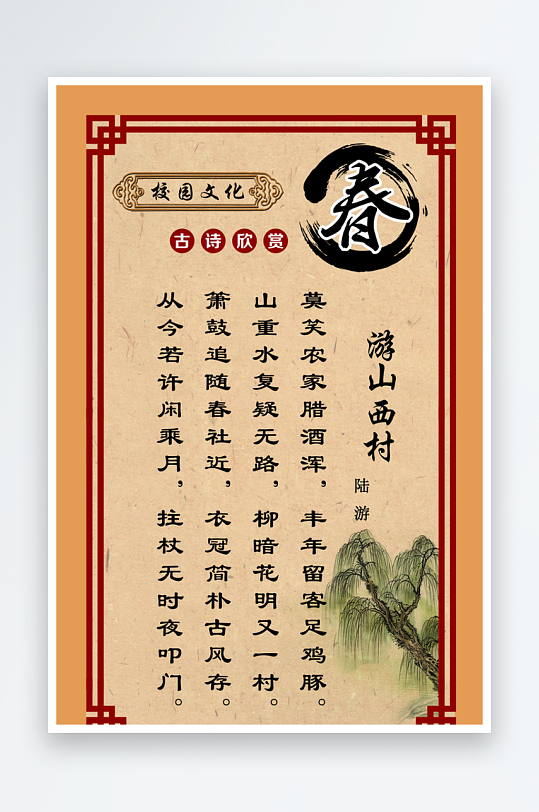 校园文化
古诗欣赏
春
游山西村
陆游
莫笑农家腊酒浑，丰年留客足鸡豚。
山重水复疑无路，柳暗花明又一村。
箫鼓追随春社近，衣冠简朴古风存。
从今若许闲乘月，拄杖无时夜叩门。